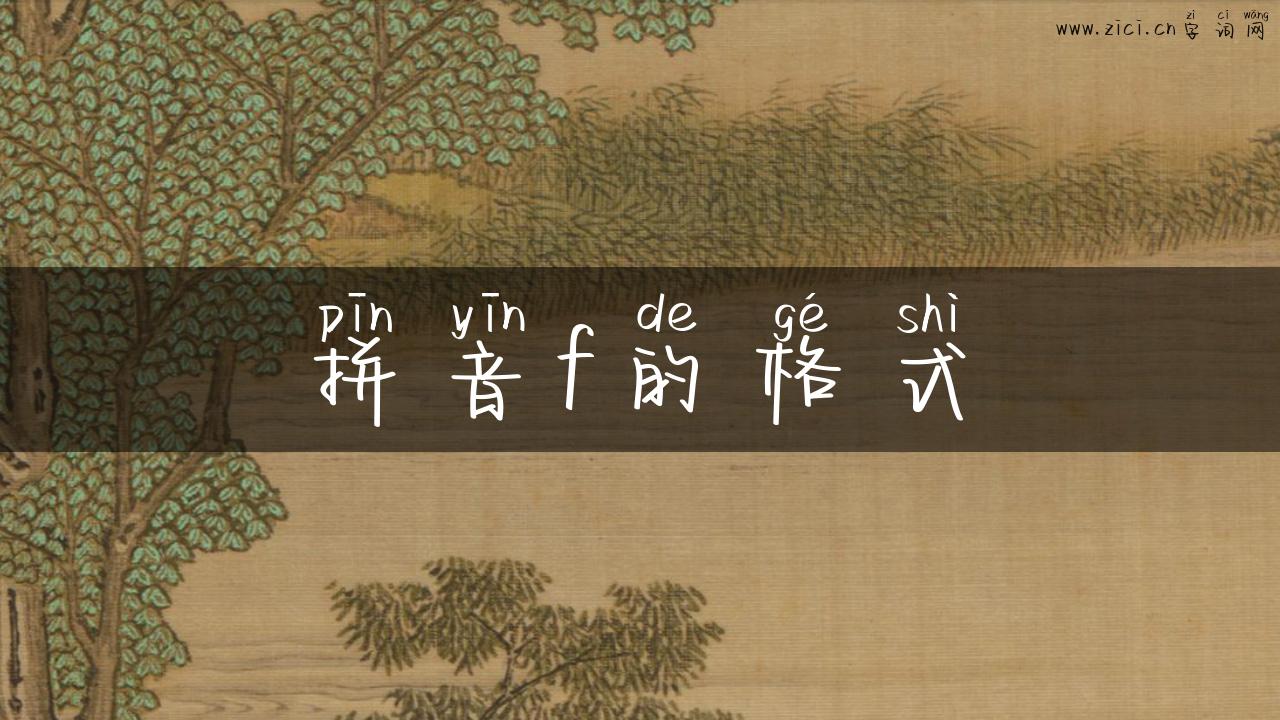 zì cí wǎng
www.zici.cn字词网
pīn yīn de gé shì
拼音f的格式